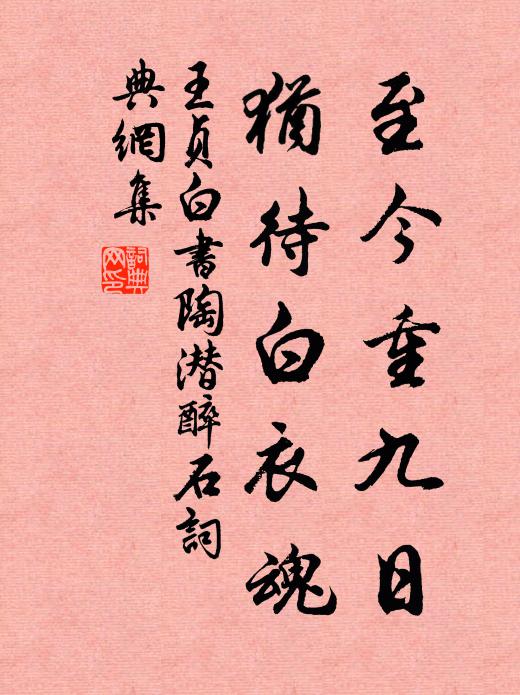 至今重九日
猶待白衣魂
王貞白書陶潜醉石詞
典網集
詞典网印